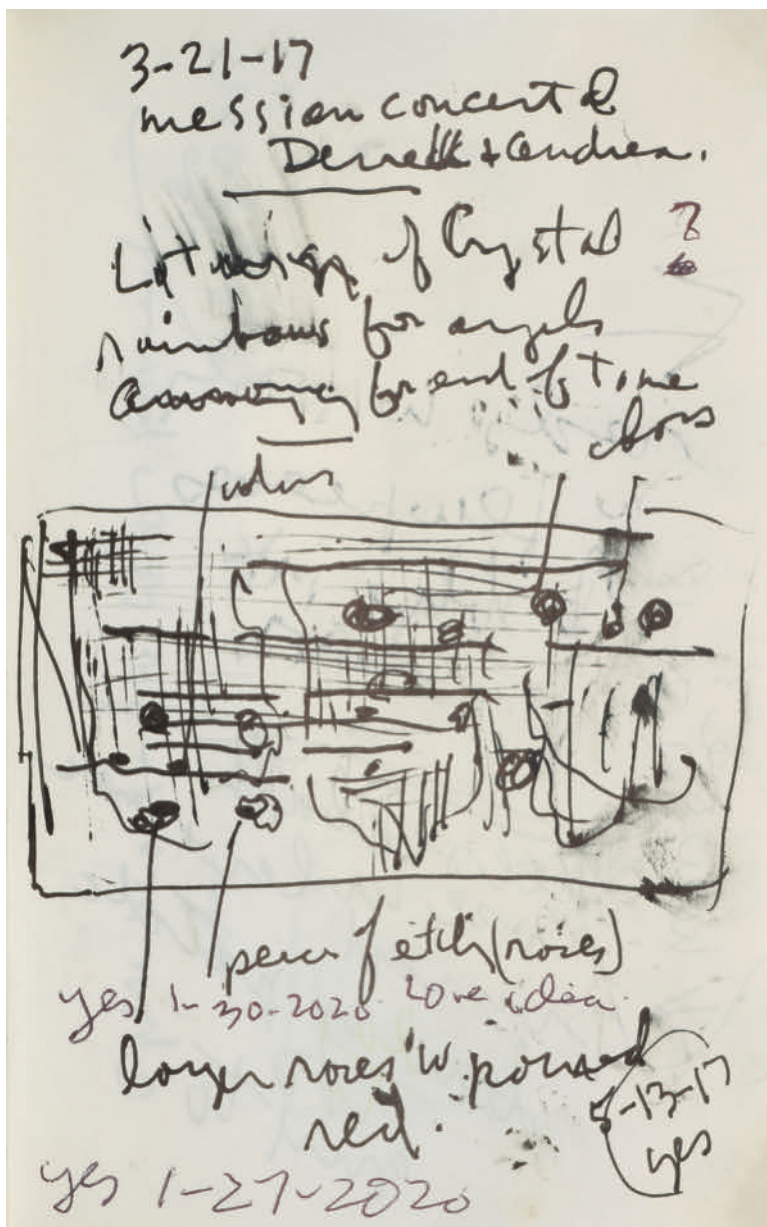 3-21-17
mession concert @
Derrell + Andrea.
Liturgy of Crystal ?
rainbows for angels
for end of time
colors
of etch (roses)
yes 1-30-2020 Love idea.
larger roses w poured
red.
5-13-17
yes
yes 1-27-2020